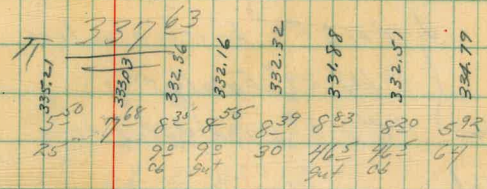 π 337 63
335.21 333.03 332.36 332.16 332.32 331.88 332.51 334.79
5 50 7 68 8 35 8 55 8 39 8 83 8 20 5 92
25 9 0 9 0 30 46 5 46 5
cb gut gut cb